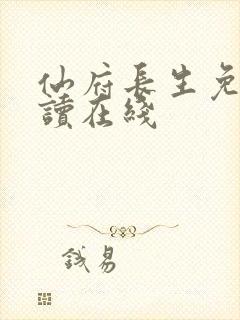 仙府長生免
讀在綫
易